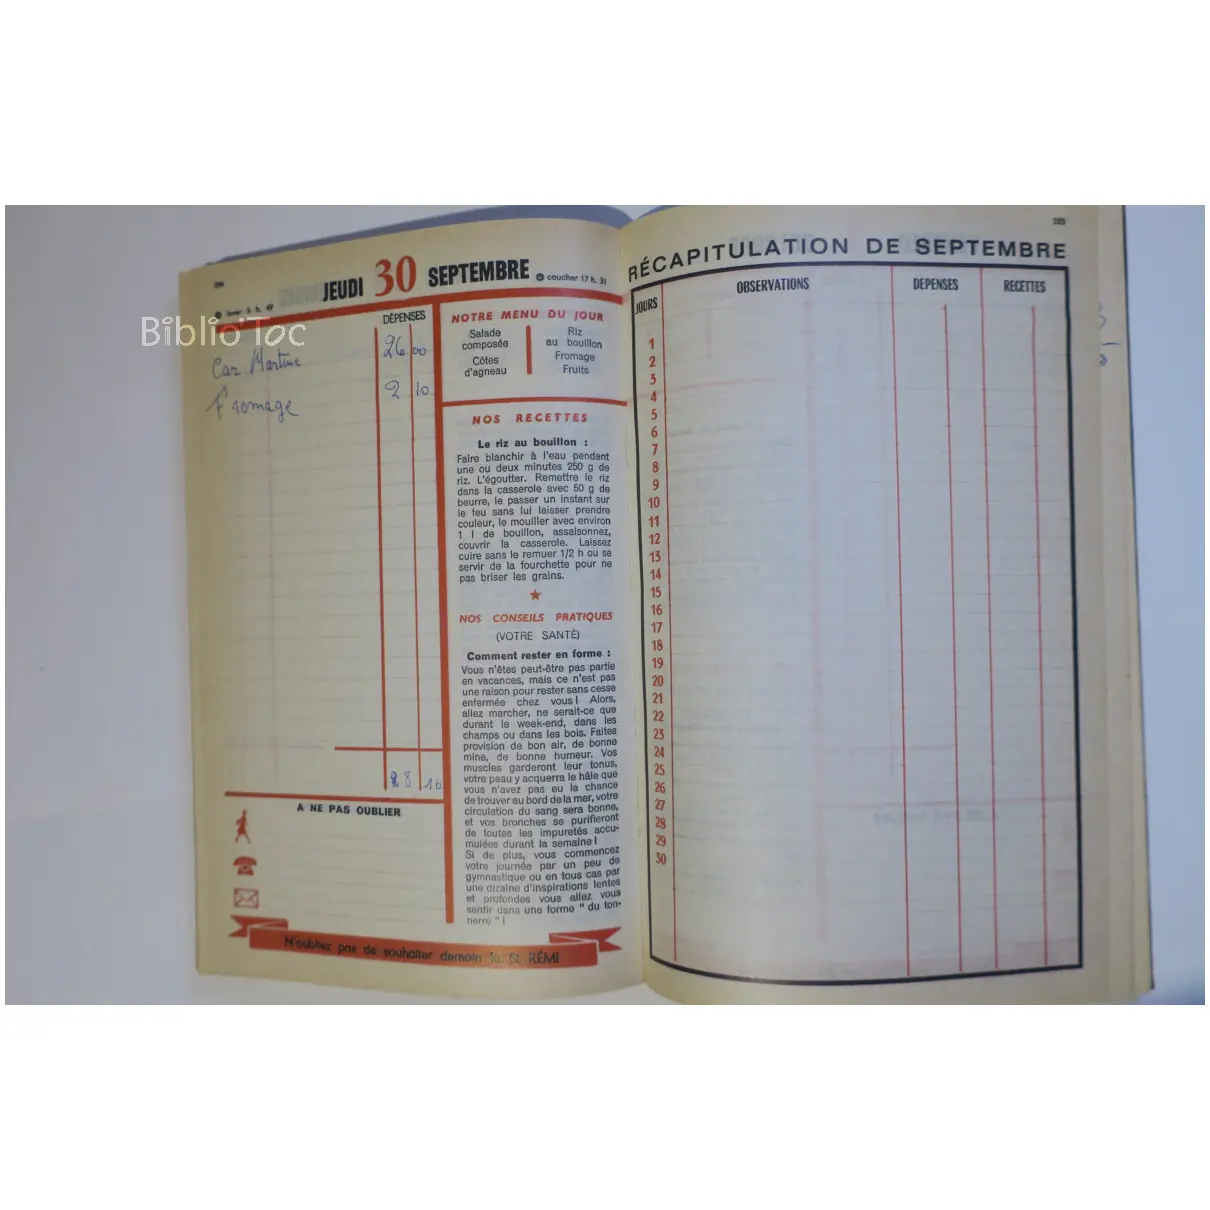 JEUDI 30 SEPTEMBRE
coucher 17 h. 31
Biblio'Toc
DÉPENSES
Car Martine 26 00
Fromage 2 10
28 10
A NE PAS OUBLIER
NOTRE MENU DU JOUR
Salade
composée
Côtes
d'agneau
Riz
au bouillon
Fromage
Fruits
NOS RECETTES
Le riz au bouillon :
Faire blanchir à l'eau pendant
une ou deux minutes 250 g de
riz. L'égoutter. Remettre le riz
dans la casserole avec 50 g de
beurre, le passer un instant sur
le feu sans lui laisser prendre
couleur, le mouiller avec environ
1 l de bouillon, assaisonnez,
couvrir la casserole. Laissez
cuire sans le remuer 1/2 h ou se
servir de la fourchette pour ne
pas briser les grains.
NOS CONSEILS PRATIQUES
(VOTRE SANTÉ)
Comment rester en forme :
Vous n'êtes peut-être pas partie
en vacances, mais ce n'est pas
une raison pour rester sans cesse
enfermée chez vous ! Alors,
allez marcher, ne serait-ce que
durant le week-end, dans les
champs ou dans les bois. Faites
provision de bon air, de bonne
mine, de bonne humeur. Vos
muscles garderont leur tonus,
votre peau y acquerra le hâle que
vous n'avez pas eu la chance
de trouver au bord de la mer, votre
circulation du sang sera bonne,
et vos bronches se purifieront
de toutes les impuretés accu-
mulées durant la semaine !
Si de plus, vous commencez
votre journée par un peu de
gymnastique ou en tous cas par
une dizaine d'inspirations lentes
et profondes vous allez vous
sentir dans une forme " du ton-
nerre " !
N'oubliez pas de souhaiter demain la St RÉMI
285
RÉCAPITULATION DE SEPTEMBRE
JOURS OBSERVATIONS DEPENSES RECETTES
1
2
3
4
5
6
7
8
9
10
11
12
13
14
15
16
17
18
19
20
21
22
23
24
25
26
27
28
29
30